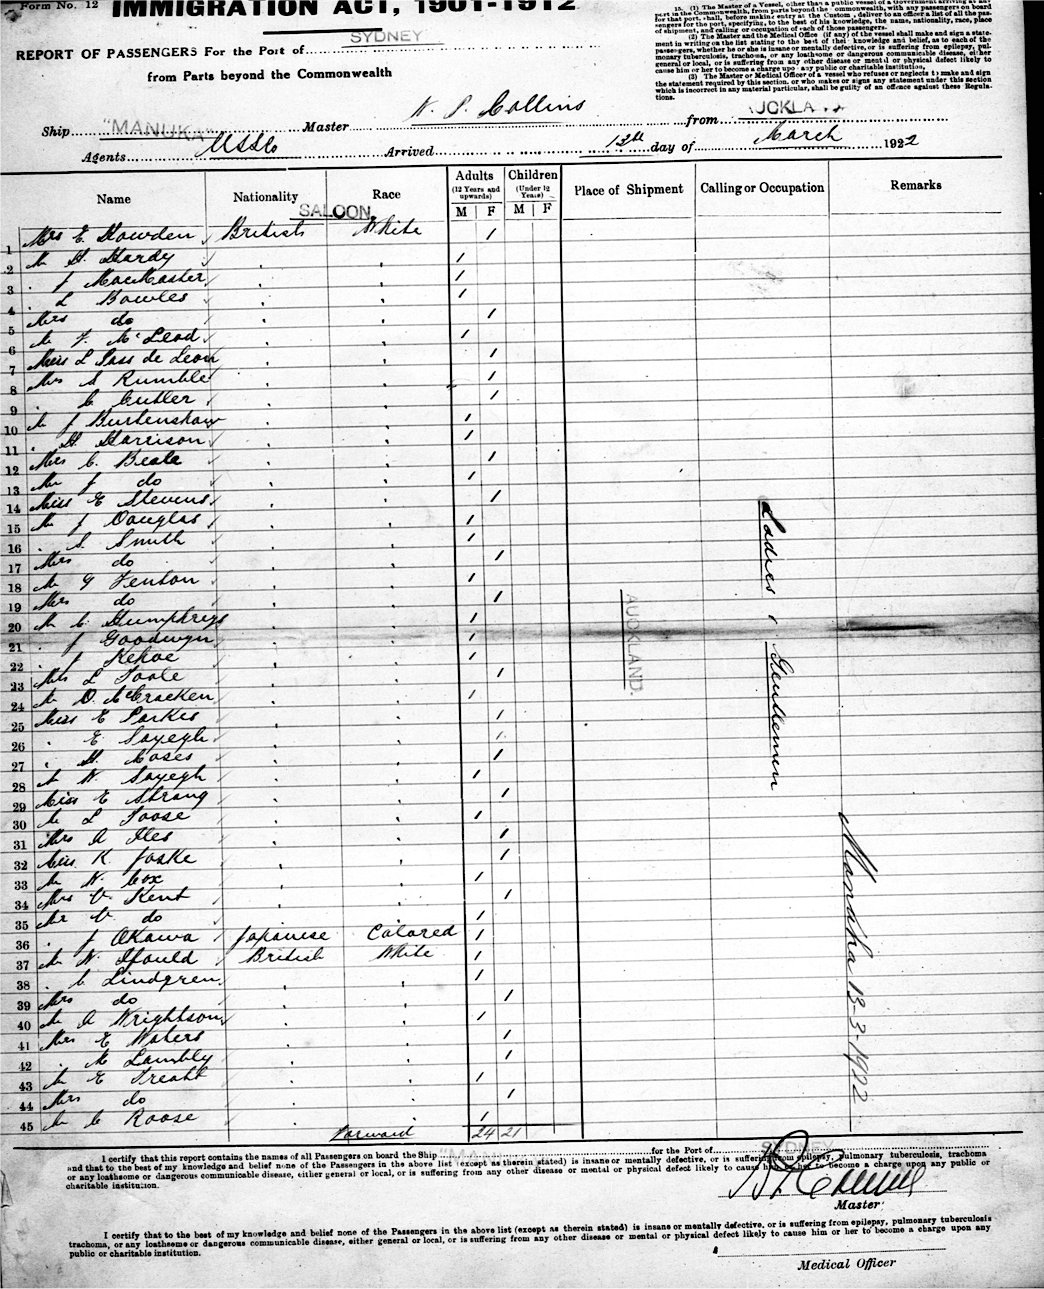 Form No. 12
IMMIGRATION ACT, 1901-1912
SYDNEY
REPORT OF PASSENGERS For the Port of
from Parts beyond the Commonwealth
15. (1) The Master of a Vessel, other than a public vessel of a Government arriving at any
port in the Commonwealth, from parts beyond the Commonwealth, with any passengers on board
for that port, shall, before making entry at the Customs, deliver to an officer a list of all the pas-
sengers for the port, specifying, to the best of his knowledge, the name, nationality, race, place
of shipment, and calling or occupation of each of those passengers.
(2) The Master and the Medical Officer (if any) of the vessel shall make and sign a state-
ment in writing on the list stating to the best of their knowledge and belief, as to each of the
passengers, whether he or she is insane or mentally defective, or is suffering from epilepsy, pul-
monary tuberculosis, trachoma, or any loathsome or dangerous communicable disease, either
general or local, or is suffering from any other disease or mental or physical defect likely to
cause him or her to become a charge upon any public or charitable institution.
(3) The Master or Medical Officer of a vessel who refuses or neglects to make and sign
the statement required by this section, or who makes or signs any statement under this section
which is incorrect in any material particular, shall be guilty of an offence against these Regula-
tions.
Ship "MANUKA" Master Collins from
Agents USSCo Arrived 12th day of March 1922
Name Nationality Race Adults (12 Years and upwards) M F Children (Under 12 Years) M F Place of Shipment Calling or Occupation Remarks
SALOON.
1 Mrs E Howden British White /
2 Mr H Hardy " " /
3 " J MacMaster " " /
4 " L Bowles " " /
5 Mrs do " " /
6 Mr F McLeod " " /
7 Miss L Pass de Leon " " /
8 Mrs A Rumble " " /
9 " C Cutler " " /
10 Mr J Burtenshaw " " /
11 " H Harrison " " /
12 Mrs C Beale " " /
13 Mr J do " " /
14 Miss E Stevens " " /
15 Mr J Douglas " " /
16 " S Smith " " /
17 Mrs do " " /
18 Mr G Fenton " " /
19 Mrs do " " /
20 Mr C Humphreys " " /
21 " J Goodwyn " " /
22 " J Kehoe " " /
23 Mrs L Toole " " /
24 Mr D McCracken " " /
25 Miss E Parkes " " /
26 " E Sayegh " " /
27 " H Coses " " /
28 Mr N Sayegh " " /
29 Miss E Strong " " /
30 Mr L Toose " " /
31 Mrs A Iles " " /
32 Miss K Joske " " /
33 Mr N Cox " " /
34 Mrs V Kent " " /
35 Mr V do " " /
36 " J Okawa Japanese Colored /
37 Mr N Gould British White /
38 " C Lindgren " " /
39 Mrs do " " /
40 Mr A Wrightson " " /
41 Mrs E Waters " " /
42 " M Lambly " " /
43 Mr E Treatt " " /
44 Mrs do " " /
45 Mr C Roose " " /
Forward 24 21
AUCKLAND.
Ladies & Gentlemen
Manuka 13-3-1922
I certify that this report contains the names of all Passengers on board the Ship "MANUKA" for the Port of SYDNEY
and that to the best of my knowledge and belief none of the Passengers in the above list (except as therein stated) is insane or mentally defective, or is suffering from epilepsy, pulmonary tuberculosis, trachoma
or any loathsome or dangerous communicable disease, either general or local, or is suffering from any other disease or mental or physical defect likely to cause him or her to become a charge upon any public or
charitable institution.
Master
I certify that to the best of my knowledge and belief none of the Passengers in the above list (except as therein stated) is insane or mentally defective, or is suffering from epilepsy, pulmonary tuberculosis
trachoma, or any loathsome or dangerous communicable disease, either general or local, or is suffering from any other disease or mental or physical defect likely to cause him or her to become a charge upon any
public or charitable institution.
Medical Officer